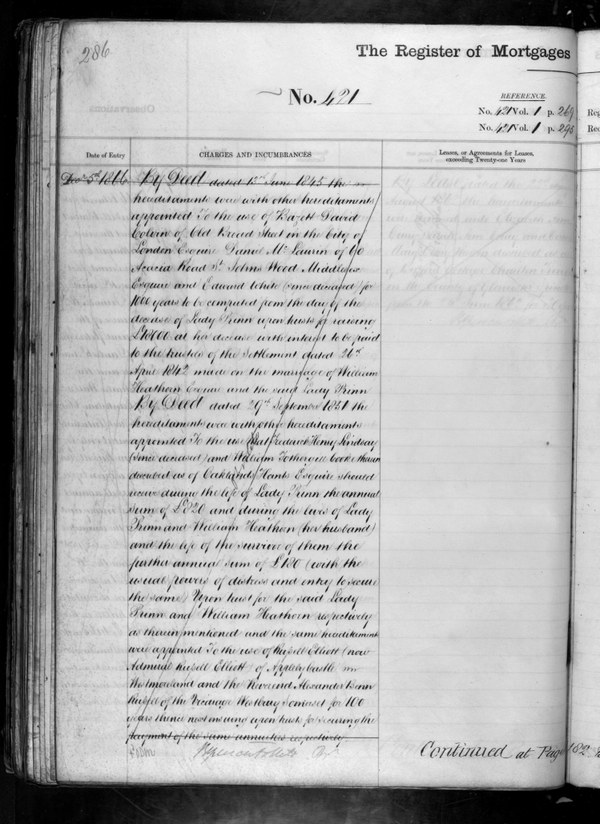 286
The Register of Mortgages
No. 421
REFERENCE.
No. 421 Vol. 1 p. 269
No. 421 Vol. 1 p. 293
Date of Entry
CHARGES AND INCUMBRANCES
Leases, or Agreements for Leases, exceeding Twenty-one Years
1866
By Deed dated June 1845 the
hereditaments were with other hereditaments
appointed To the use of Bazett David
Colvin of Old Broad Street in the City of
London Esquire Daniel Mc Laurin of 40
Acacia Road St. Johns Wood Middlesex
Esquire and Edward White (since deceased) for
1000 years to be computed from the day of the
decease of Lady Prinn upon trusts for raising
at her decease with interest to be paid
to the trustees of the Settlement dated 26th
April 1842 made on the marriage of William
Heathorn Esquire and the said Lady Prinn
By Deed dated 29th September 1851 the
hereditaments were with other hereditaments
appointed To the use that Frederick Henry Lindsay
(since deceased) and William Fothergill Cooke therein
described as of Oaklands Hants Esquire should
receive during the life of Lady Prinn the annual
sum of £520 and during the lives of Lady
Prinn and William Heathorn (her husband)
and the life of the survivor of them the
further annual sum of £180 (with the
usual powers of distress and entry to secure
the same) Upon trust for the said Lady
Prinn and William Heathorn respectively
as therein mentioned and the same hereditaments
were appointed To the use of Russell Elliott (now
Admiral Russell Elliott) of Appleby Castle in
Westmoreland and the Reverend Alexander Benn
Russell of the Vicarage Westbury Somerset for 100
years thence next ensuing upon trusts for securing the
payment of the same annuities respectively
Continued at Page 182